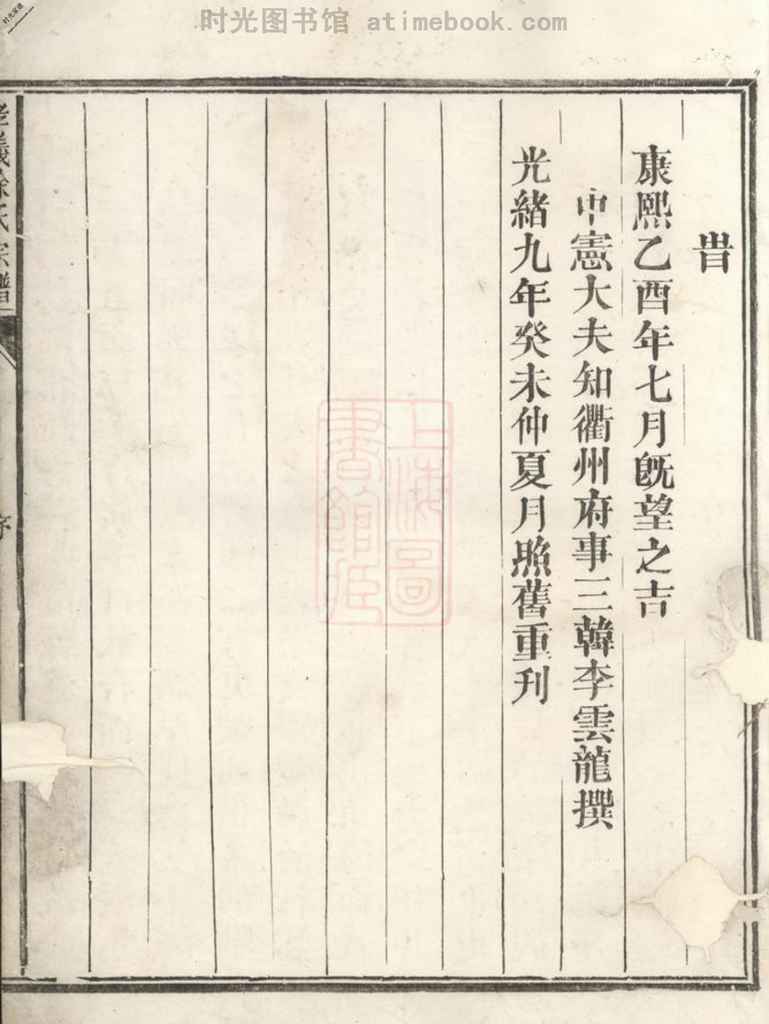 时光图书馆 atimebook.com
旹
康熙乙酉年七月旣望之吉
中憲大夫知衢州府事三韓李雲龍撰
光緒九年癸未仲夏月照舊重刊
上海圖書館藏
孝義徐氏宗譜
序